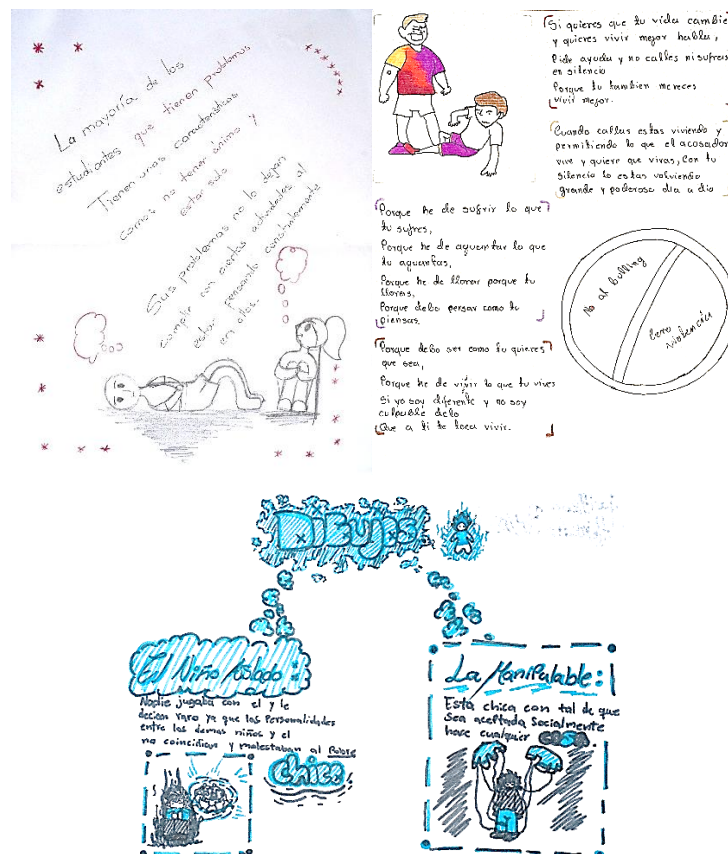 La mayoría de los
estudiantes que tienen problemas
Tienen unas características
como: no tener ánimo y
estar solo
Sus problemas no lo dejan
cumplir con ciertas actividades al
estar pensando constantemente
en ellos.
Si quieres que tu vida cambie
y quieres vivir mejor habla,
Pide ayuda y no calles ni sufras
en silencio
Porque tu tambien mereces
vivir mejor.
Cuando callas estas viviendo y
permitiendo lo que el acosador
vive y quiere que vivas, con tu
silencio lo estas volviendo
grande y poderoso dia a dia
Porque he de sufrir lo que
tu sufres,
Porque he de aguantar lo que
tu aguantas,
Porque he de llorar porque tu
lloras,
Porque debo pensar como tu
piensas.
Porque debo ser como tu quieres
que sea,
Porque he de vivir lo que tu vives
si yo soy diferente y no soy
culpable delo
Que a ti te toca vivir.
No al bulling
Cero violencia
DIBUJOS
El Niño Aislado:
Nadie jugaba con el y le
decian raro ya que las Personalidades
entre los demas niños y el
no coincidian y molestaban al Pobre
chico
La Manipulable:
Esta chica con tal de que
sea aceptada socialmente
hace cualquier COSA.